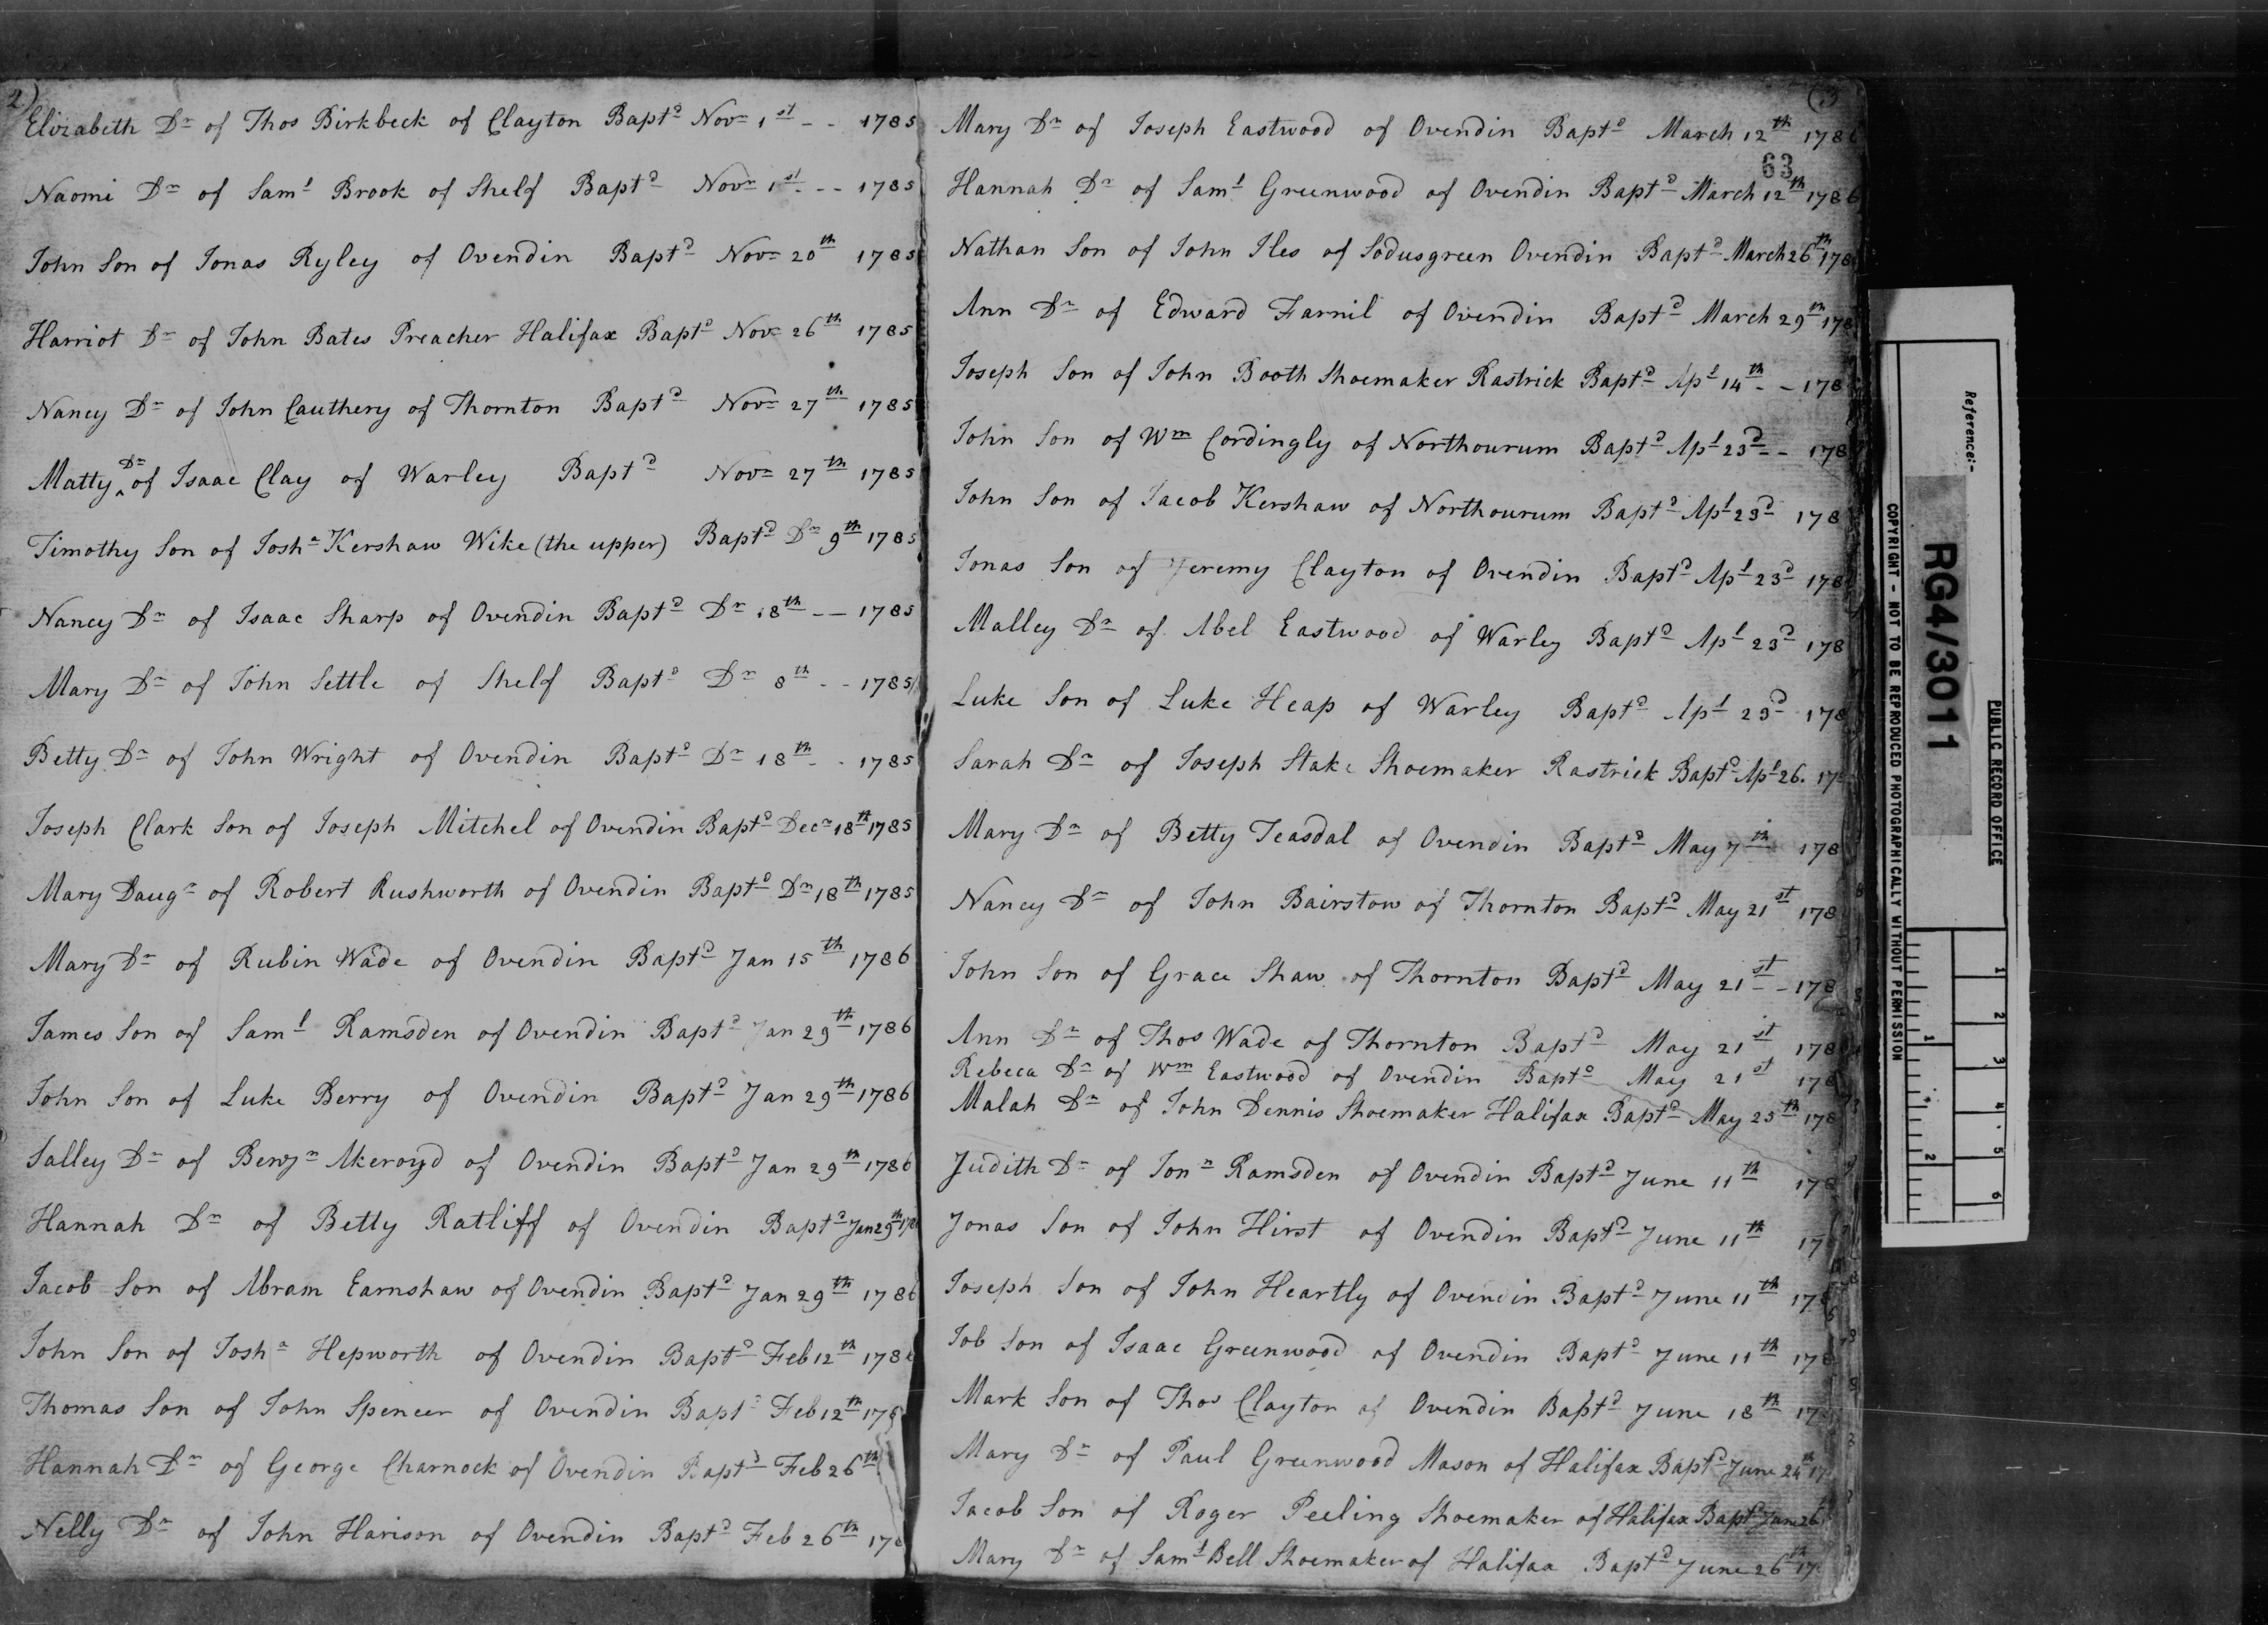 2)
Elizabeth Dr of Thos Birkbeck of Clayton Baptd Novr 1st - - 1785
Naomi Dr of Saml Brook of Shelf Baptd Novr 1st - - 1785
John Son of Jonas Ryley of Ovendin Baptd Novr 20th 1785
Harriot Dr of John Bates Preacher Halifax Baptd Novr 26th 1785
Nancy Dr of John Cauthery of Thornton Baptd Novr 27th 1785
Matty Dr of Isaac Clay of Warley Baptd Novr 27th 1785
Timothy Son of Josha Kershaw Wike (the upper) Baptd Dr 9th 1785
Nancy Dr of Isaac Sharp of Ovendin Baptd Dr 18th - - 1785
Mary Dr of John Settle of Shelf Baptd Dr 8th - - 1785
Betty Dr of John Wright of Ovendin Baptd Dr 18th - - 1785
Joseph Clark Son of Joseph Mitchel of Ovendin Baptd Decr 18th 1785
Mary Daugr of Robert Rushworth of Ovendin Baptd Dr 18th 1785
Mary Dr of Rubin Wade of Ovendin Baptd Jan 15th 1786
James Son of Saml Ramsden of Ovendin Baptd Jan 29th 1786
John Son of Luke Berry of Ovendin Baptd Jan 29th 1786
Salley Dr of Benjn Akeroyd of Ovendin Baptd Jan 29th 1786
Hannah Dr of Betty Ratliff of Ovendin Baptd Jan 29th
Jacob Son of Abram Earnshaw of Ovendin Baptd Jan 29th 1786
John Son of Josha Hepworth of Ovendin Baptd Feb 12th 1786
Thomas Son of John Spencer of Ovendin Baptd Feb 12th
Hannah Dr of George Charnock of Ovendin Baptd Feb 26th
Nelly Dr of John Harison of Ovendin Baptd Feb 26th
(3
63
Mary Dr of Joseph Eastwood of Ovendin Baptd March 12th 1786
Hannah Dr of Saml Greenwood of Ovendin Baptd March 12th 1786
Nathan Son of John Iles of Sodusgreen Ovendin Baptd March 26th 178
Ann Dr of Edward Farnil of Ovendin Baptd March 29th 178
Joseph Son of John Booth Shoemaker Rastrick Baptd Apl 14th - - 178
John Son of Wm Cordingly of Northourum Baptd Apl 23d - - 178
John Son of Jacob Kershaw of Northourum Baptd Apl 23d 178
Jonas Son of Jeremy Clayton of Ovendin Baptd Apl 23d 178
Malley Dr of Abel Eastwood of Warley Baptd Apl 23d 178
Luke Son of Luke Heap of Warley Baptd Apl 23d 178
Sarah Dr of Joseph Stake Shoemaker Rastrick Baptd Apl 26. 17
Mary Dr of Betty Teasdal of Ovendin Baptd May 7th 178
Nancy Dr of John Bairstow of Thornton Baptd May 21st 178
John Son of Grace Shaw of Thornton Baptd May 21st - - 178
Ann Dr of Thos Wade of Thornton Baptd May 21st 178
Rebeca Dr of Wm Eastwood of Ovendin Baptd May 21st 178
Malah Dr of John Dennis Shoemaker Halifax Baptd May 25th 178
Judith Dr of Jonn Ramsden of Ovendin Baptd June 11th 178
Jonas Son of John Hirst of Ovendin Baptd June 11th 17
Joseph Son of John Heartly of Ovendin Baptd June 11th 178
Job Son of Isaac Greenwood of Ovendin Baptd June 11th 178
Mark Son of Thos Clayton of Ovendin Baptd June 18th 17
Mary Dr of Paul Greenwood Mason of Halifax Baptd June 24th 17
Jacob Son of Roger Peeling Shoemaker of Halifax Baptd June 26
Mary Dr of Saml Bell Shoemaker of Halifax Baptd June 26th 17
Reference:-
RG4/3011
PUBLIC RECORD OFFICE
1 2 3 4 5 6
1 2
COPYRIGHT - NOT TO BE REPRODUCED PHOTOGRAPHICALLY WITHOUT PERMISSION